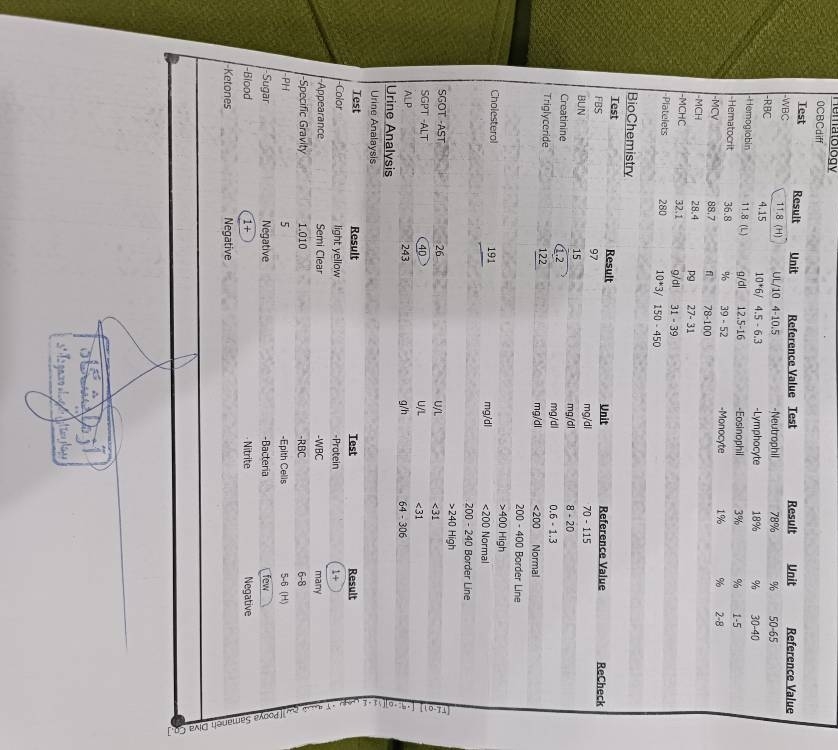 Hematology
OCBCdiff
Test Result Unit Reference Value Test Result Unit Reference Value
-WBC 11.8 (H) UL/10 4-10.5 -Neutrophil 78% % 50-65
-RBC 4.15 10*6/ 4.5 - 6.3 -Lymphocyte 18% % 30-40
-Hemoglobin 11.8 (L) g/dl 12.5-16 -Eosinophil 3% % 1-5
-Hematocrit 36.8 % 39 - 52 -Monocyte 1% % 2-8
-MCV 88.7 fl 78-100
-MCH 28.4 pg 27- 31
-MCHC 32.1 g/dl 31 - 39
-Platelets 280 10*3/ 150 - 450
BioChemistry
Test Result Unit Reference Value ReCheck
FBS 97 mg/dl 70 - 115
BUN 15 mg/dl 8 - 20
Creatinine 1.2 mg/dl 0.6 - 1.3
Triglyceride 122 mg/dl <200 Normal
200 - 400 Border Line
>400 High
Cholesterol 191 mg/dl <200 Normal
200 - 240 Border Line
>240 High
SGOT -AST 26 U/L <31
SGPT -ALT 40 U/L <31
ALP 243 g/h 64 - 306
Urine Analysis
Urine Analaysis
Test Result Test Result
-Color light yellow -Protein 1+
-Appearance Semi Clear -WBC many
-Specific Gravity 1.010 -RBC 6-8
-PH 5 -Epith Cells 5-6 (H)
-Sugar Negative -Bacteria few
-Blood 1+ -Nitrite Negative
-Ketones Negative
آزمایشگاه
[Pooya Samaneh Diva Co.]